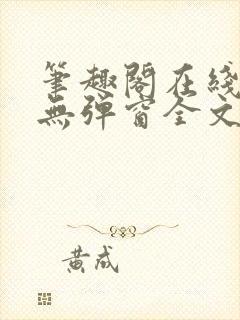 筆趣閣在綫
無彈窗全文
黃成